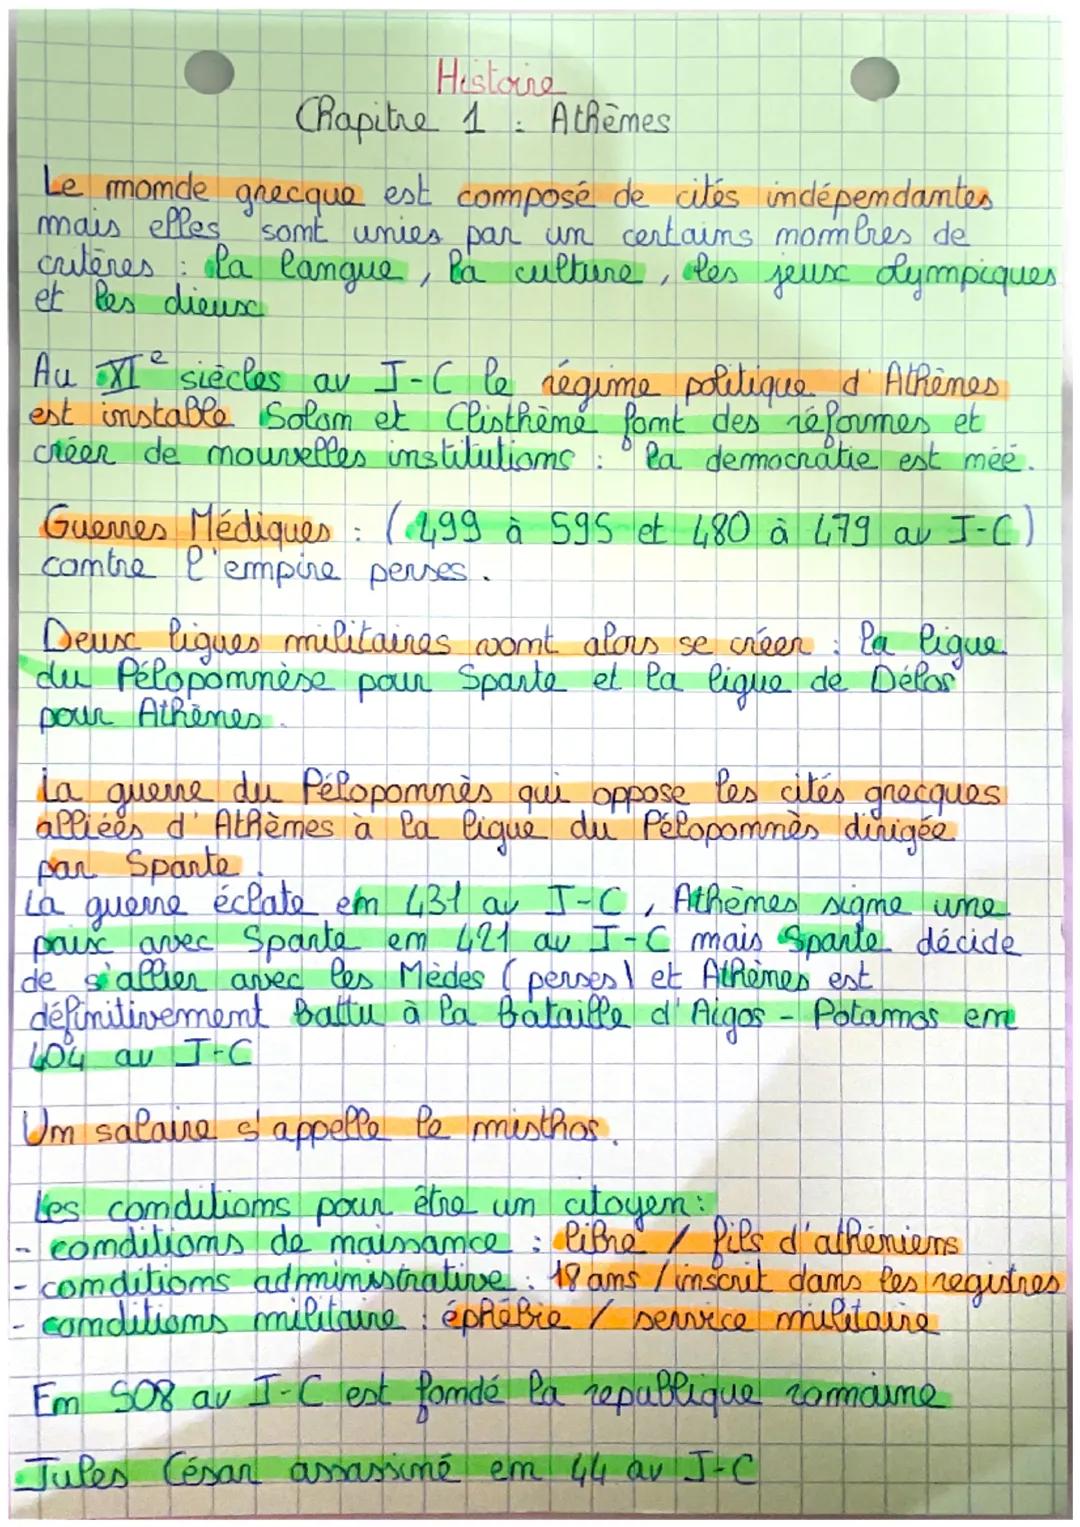 Histoire
Chapitre 1 : Athènes
Le monde grecque est composé de cités indépendantes
mais elles sont unies par un certains nombres de
critères : la langue, la culture, les jeux olympiques
et les dieux
Au XIe siècles av J-C le régime politique d'Athènes
est instable Solon et Clisthène font des réformes et
créer de nouvelles institutions : la democratie est néé.
Guerres Médiques : (499 à 595 et 480 à 479 av J-C)
contre l'empire perses.
Deux ligues militaires vont alors se créer : la ligue
du Péloponnèse pour Sparte et la ligue de Délos
pour Athènes.
La guerre du Péloponnès qui oppose les cités grecques
alliées d'Athènes à la ligue du Péloponnès dirigée
par Sparte.
La guerre éclate en 431 av J-C, Athènes signe une
paix avec Sparte en 421 av J-C mais Sparte décide
de s'allier avec les Mèdes (perses) et Athènes est
définitivement battu à la bataille d'Aigos - Potamos en
404 av J-C
Un salaire s'appelle le misthos.
Les conditions pour être un citoyen :
- conditions de naissance : libre / fils d'athéniens
- conditions administrative : 18 ans / inscrit dans les registres
- conditions militaire : éphébie / service militaire
En 508 av J-C est fondé la republique romaine
Jules César assassiné en 44 av J-C